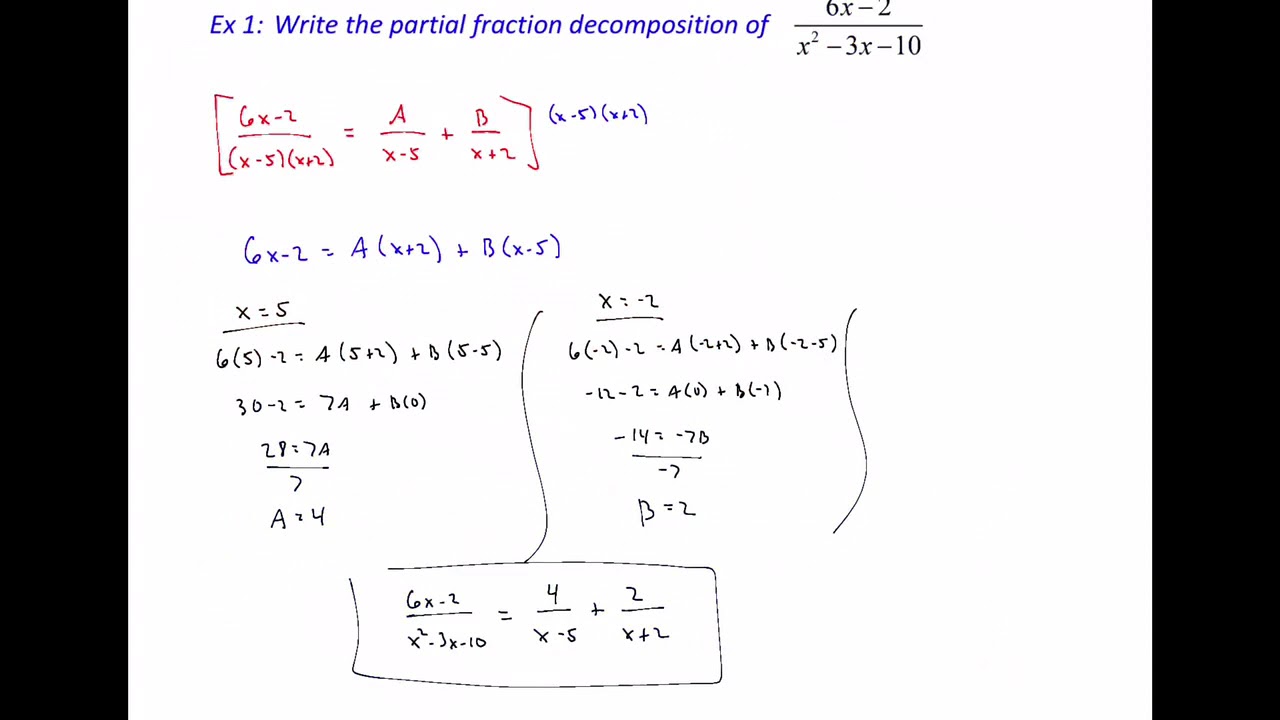 Ex 1: Write the partial fraction decomposition of (6x-2)/(x²-3x-10)
[(6x-2)/((x-5)(x+2)) = A/(x-5) + B/(x+2)] (x-5)(x+2)
6x-2 = A(x+2) + B(x-5)
x = 5
6(5)-2 = A(5+2) + B(5-5)
30-2 = 7A + B(0)
28 = 7A
7
A = 4
x = -2
6(-2)-2 = A(-2+2) + B(-2-5)
-12-2 = A(0) + B(-7)
-14 = -7B
-7
B = 2
(6x-2)/(x²-3x-10) = 4/(x-5) + 2/(x+2)